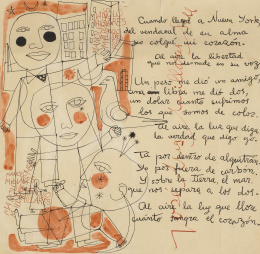 Cuando llegó a Nueva York,
del vendaval de su alma
se colgué mi corazón.
Al aire la libertad
que nos desnude en su voz
Un peso me dió un amigo,
una libra me dió dos,
un dolar cuanto sufrimos
los que somos de color.
Al aire la luz que diga
la verdad que digo yo.
Tú por dentro de alquitrán,
Yo por fuera de carbón.
Y sobre la tierra, el mar
que nos separa a los dos.
Al aire la luz que llore
cuanto sangra el corazón.